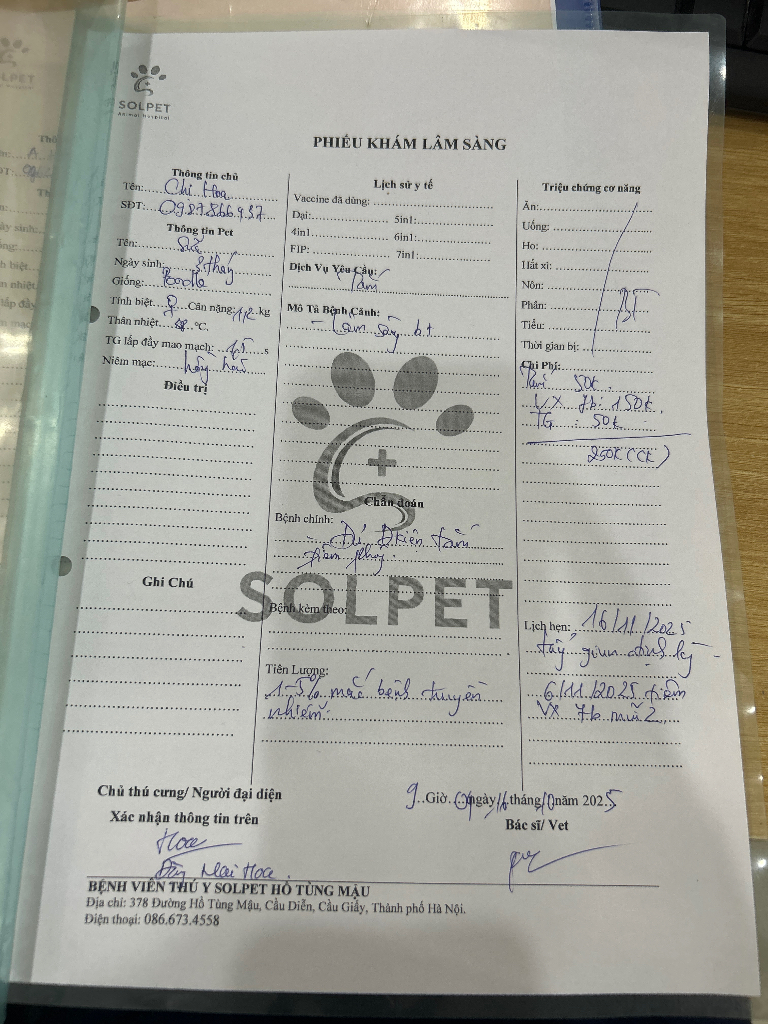 SOLPET
Animal Hospital
PHIẾU KHÁM LÂM SÀNG
Thông tin chủ
Tên: Chị Hoa
SĐT: 0987.866.937
Thông tin Pet
Tên:
Ngày sinh: 3 tháng
Giống: Poodle
Tính biệt ♀ Cân nặng: 1,2 kg
Thân nhiệt: °C.
TG lấp đầy mao mạch: 1,5 s
Niêm mạc: hồng hào
Điều trị
Ghi Chú
Lịch sử y tế
Vaccine đã dùng:
Dại: 5in1:
4in1 6in1:
FIP: 7in1:
Dịch Vụ Yêu Cầu:
Mô Tả Bệnh Cảnh:
- Lâm sàng b.t
Chẩn đoán
Bệnh chính:
- Đủ Đkiện
tiêm phòng.
SOLPET
Bệnh kèm theo:
Tiên Lượng:
1-5% mắc bệnh truyền
nhiễm.
Triệu chứng cơ năng
Ăn:
Uống:
Ho:
Hắt xì:
Nôn:
Phân: BT
Tiểu:
Thời gian bị:
Chi Phí:
50k.
VX 7b: 150k.
TG : 50k
250k (CK)
Lịch hẹn: 16/11/2025
tẩy giun định kỳ -
6/11/2025 tiêm
VX 7b mũi 2
Chủ thú cưng/ Người đại diện
Xác nhận thông tin trên
Hoa
Mai Hoa.
9 Giờ ngày 16 tháng 10 năm 2025
Bác sĩ/ Vet
BỆNH VIỆN THÚ Y SOLPET HỒ TÙNG MẬU
Địa chỉ: 378 Đường Hồ Tùng Mậu, Cầu Diễn, Cầu Giấy, Thành phố Hà Nội.
Điện thoại: 086.673.4558